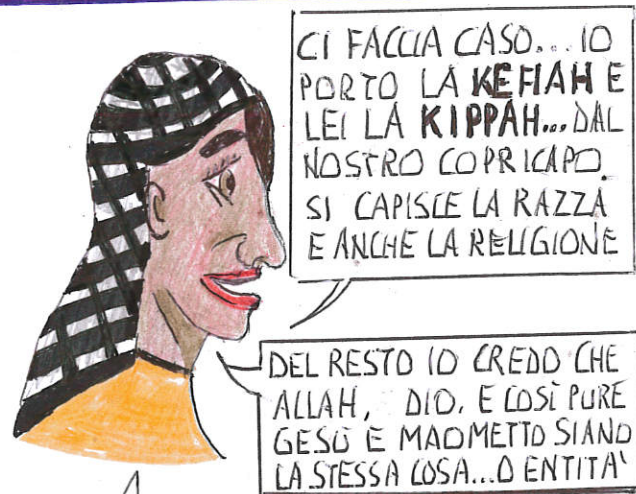 CI FACCIA CASO... IO
PORTO LA KEFIAH E
LEI LA KIPPAH... DAL
NOSTRO COPRICAPO
SI CAPISCE LA RAZZA
E ANCHE LA RELIGIONE
DEL RESTO IO CREDO CHE
ALLAH, DIO, E COSÌ PURE
GESÙ E MAOMETTO SIANO
LA STESSA COSA...O ENTITA'